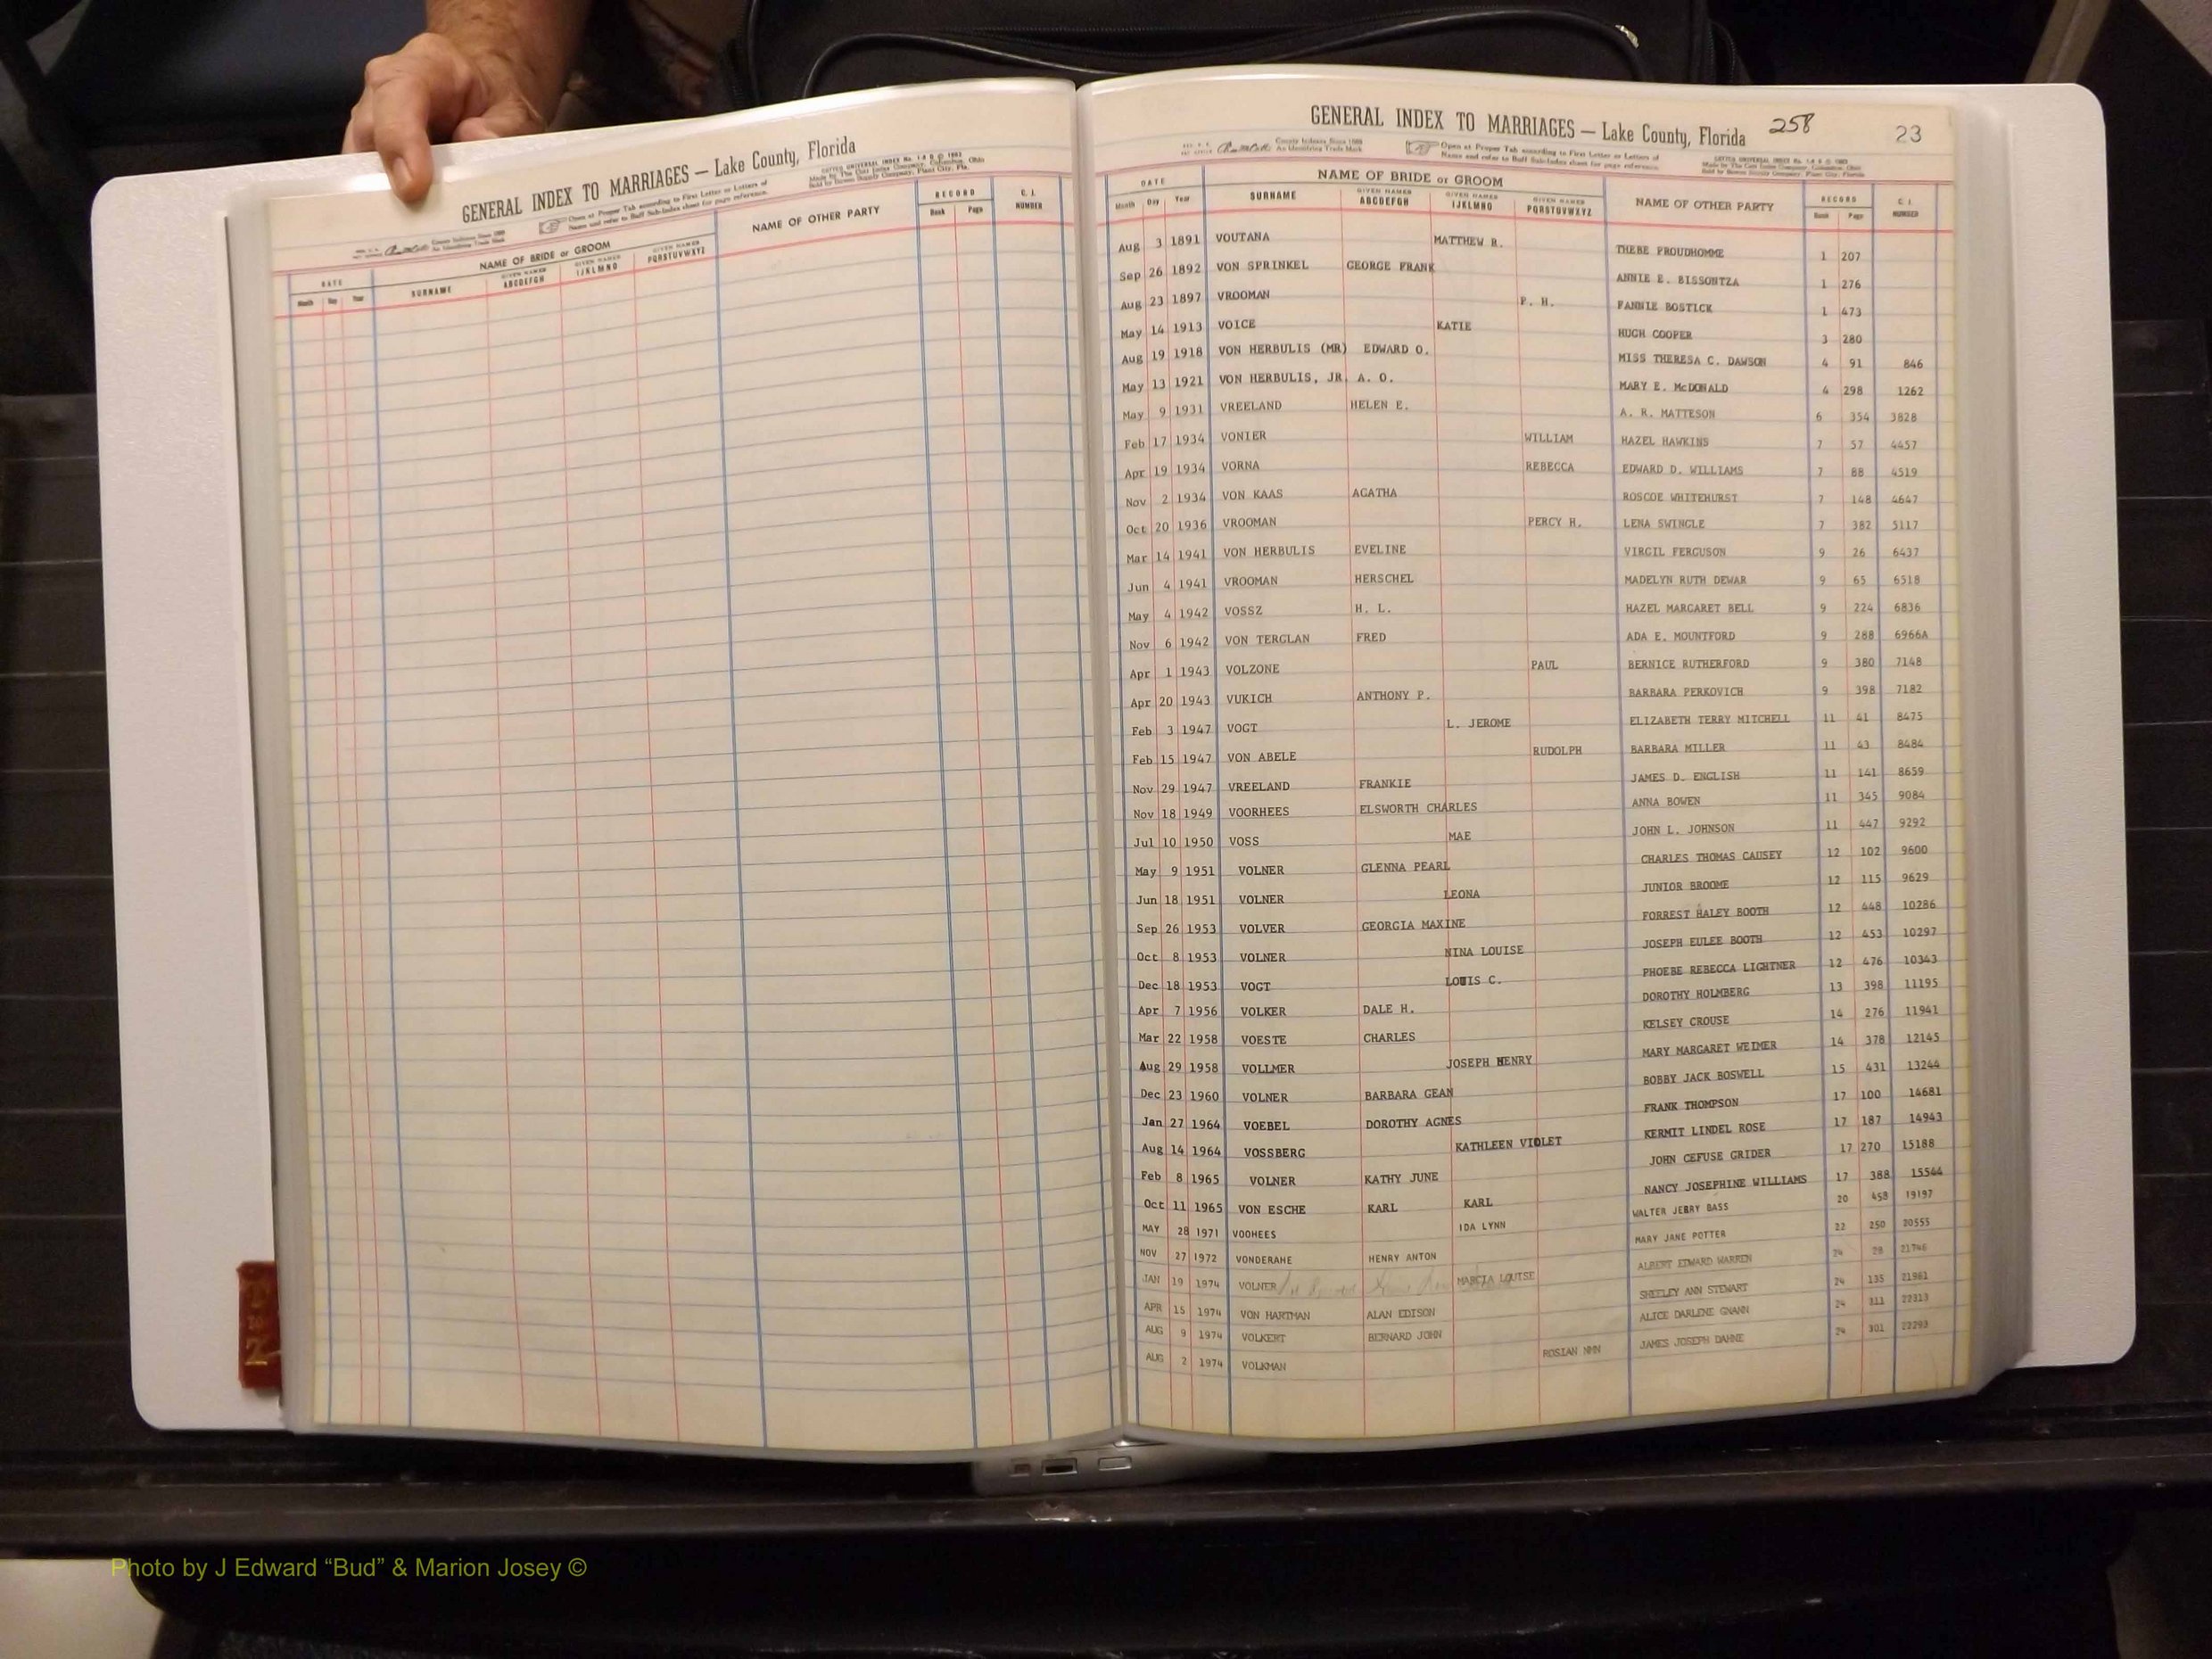 GENERAL INDEX TO MARRIAGES — Lake County, Florida
Open at Proper Tab according to First Letter or Letters of
Name and refer to Buff Sub-Index sheet for page reference.
DATE NAME OF BRIDE or GROOM NAME OF OTHER PARTY RECORD C. I. NUMBER
Month Day Year SURNAME GIVEN NAMES ABCDEFGH GIVEN NAMES IJKLMNO GIVEN NAMES PQRSTUVWXYZ Book Page
GENERAL INDEX TO MARRIAGES — Lake County, Florida 258 23
County Indexes Since 1888
An Identifying Trade Mark
Open at Proper Tab according to First Letter or Letters of
Name and refer to Buff Sub-Index sheet for page reference.
DATE NAME OF BRIDE or GROOM NAME OF OTHER PARTY RECORD C. I. NUMBER
Month Day Year SURNAME GIVEN NAMES ABCDEFGH GIVEN NAMES IJKLMNO GIVEN NAMES PQRSTUVWXYZ Book Page
Aug 3 1891 VOUTANA MATTHEW R. THEBE PROUDHOMME 1 207
Sep 26 1892 VON SPRINKEL GEORGE FRANK ANNIE E. BISSONTZA 1 276
Aug 23 1897 VROOMAN P. H. FANNIE BOSTICK 1 473
May 14 1913 VOICE KATIE HUGH COOPER 3 280
Aug 19 1918 VON HERBULIS (MR) EDWARD O. MISS THERESA C. DAWSON 4 91 846
May 13 1921 VON HERBULIS, JR. A. O. MARY E. McDONALD 4 298 1262
May 9 1931 VREELAND HELEN E. A. R. MATTESON 6 354 3828
Feb 17 1934 VONIER WILLIAM HAZEL HAWKINS 7 57 4457
Apr 19 1934 VORNA REBECCA EDWARD D. WILLIAMS 7 88 4519
Nov 2 1934 VON KAAS AGATHA ROSCOE WHITEHURST 7 148 4647
Oct 20 1936 VROOMAN PERCY H. LENA SWINGLE 7 382 5117
Mar 14 1941 VON HERBULIS EVELINE VIRGIL FERGUSON 9 26 6437
Jun 4 1941 VROOMAN HERSCHEL MADELYN RUTH DEWAR 9 65 6518
May 4 1942 VOSSZ H. L. HAZEL MARGARET BELL 9 224 6836
Nov 6 1942 VON TERGLAN FRED ADA E. MOUNTFORD 9 288 6966A
Apr 1 1943 VOLZONE PAUL BERNICE RUTHERFORD 9 380 7148
Apr 20 1943 VUKICH ANTHONY P. BARBARA PERKOVICH 9 398 7182
Feb 3 1947 VOGT L. JEROME ELIZABETH TERRY MITCHELL 11 41 8475
Feb 15 1947 VON ABELE RUDOLPH BARBARA MILLER 11 43 8484
Nov 29 1947 VREELAND FRANKIE JAMES D. ENGLISH 11 141 8659
Nov 18 1949 VOORHEES ELSWORTH CHARLES ANNA BOWEN 11 345 9084
Jul 10 1950 VOSS MAE JOHN L. JOHNSON 11 447 9292
May 9 1951 VOLNER GLENNA PEARL CHARLES THOMAS CAUSEY 12 102 9600
Jun 18 1951 VOLNER LEONA JUNIOR BROOME 12 115 9629
Sep 26 1953 VOLVER GEORGIA MAXINE FORREST HALEY BOOTH 12 448 10286
Oct 8 1953 VOLNER NINA LOUISE JOSEPH EULEE BOOTH 12 453 10297
Dec 18 1953 VOGT LOUIS C. PHOEBE REBECCA LIGHTNER 12 476 10343
Apr 7 1956 VOLKER DALE H. DOROTHY HOLMBERG 13 398 11195
Mar 22 1958 VOESTE CHARLES KELSEY CROUSE 14 276 11941
Aug 29 1958 VOLLMER JOSEPH HENRY MARY MARGARET WEIMER 14 378 12145
Dec 23 1960 VOLNER BARBARA GEAN BOBBY JACK BOSWELL 15 431 13244
Jan 27 1964 VOEBEL DOROTHY AGNES FRANK THOMPSON 17 100 14681
Aug 14 1964 VOSSBERG KATHLEEN VIOLET KERMIT LINDEL ROSE 17 187 14943
Feb 8 1965 VOLNER KATHY JUNE JOHN CEFUSE GRIDER 17 270 15188
Oct 11 1965 VON ESCHE KARL KARL NANCY JOSEPHINE WILLIAMS 17 388 15544
MAY 28 1971 VOOHEES IDA LYNN WALTER JERRY BASS 20 458 19197
NOV 27 1972 VONDERAHE HENRY ANTON MARY JANE POTTER 22 250 20555
JAN 19 1974 VOLNER MARCIA LOUISE ALBERT EDWARD WARREN 24 28 21746
APR 15 1974 VON HARTMAN ALAN EDISON SHEELEY ANN STEWART 24 135 21981
AUG 9 1974 VOLKERT BERNARD JOHN ALICE DARLENE GNANN 24 311 22313
AUG 2 1974 VOLKMAN ROSIAN NMN JAMES JOSEPH DAHNE 24 301 22293
TO
Z
Photo by J Edward “Bud” & Marion Josey ©